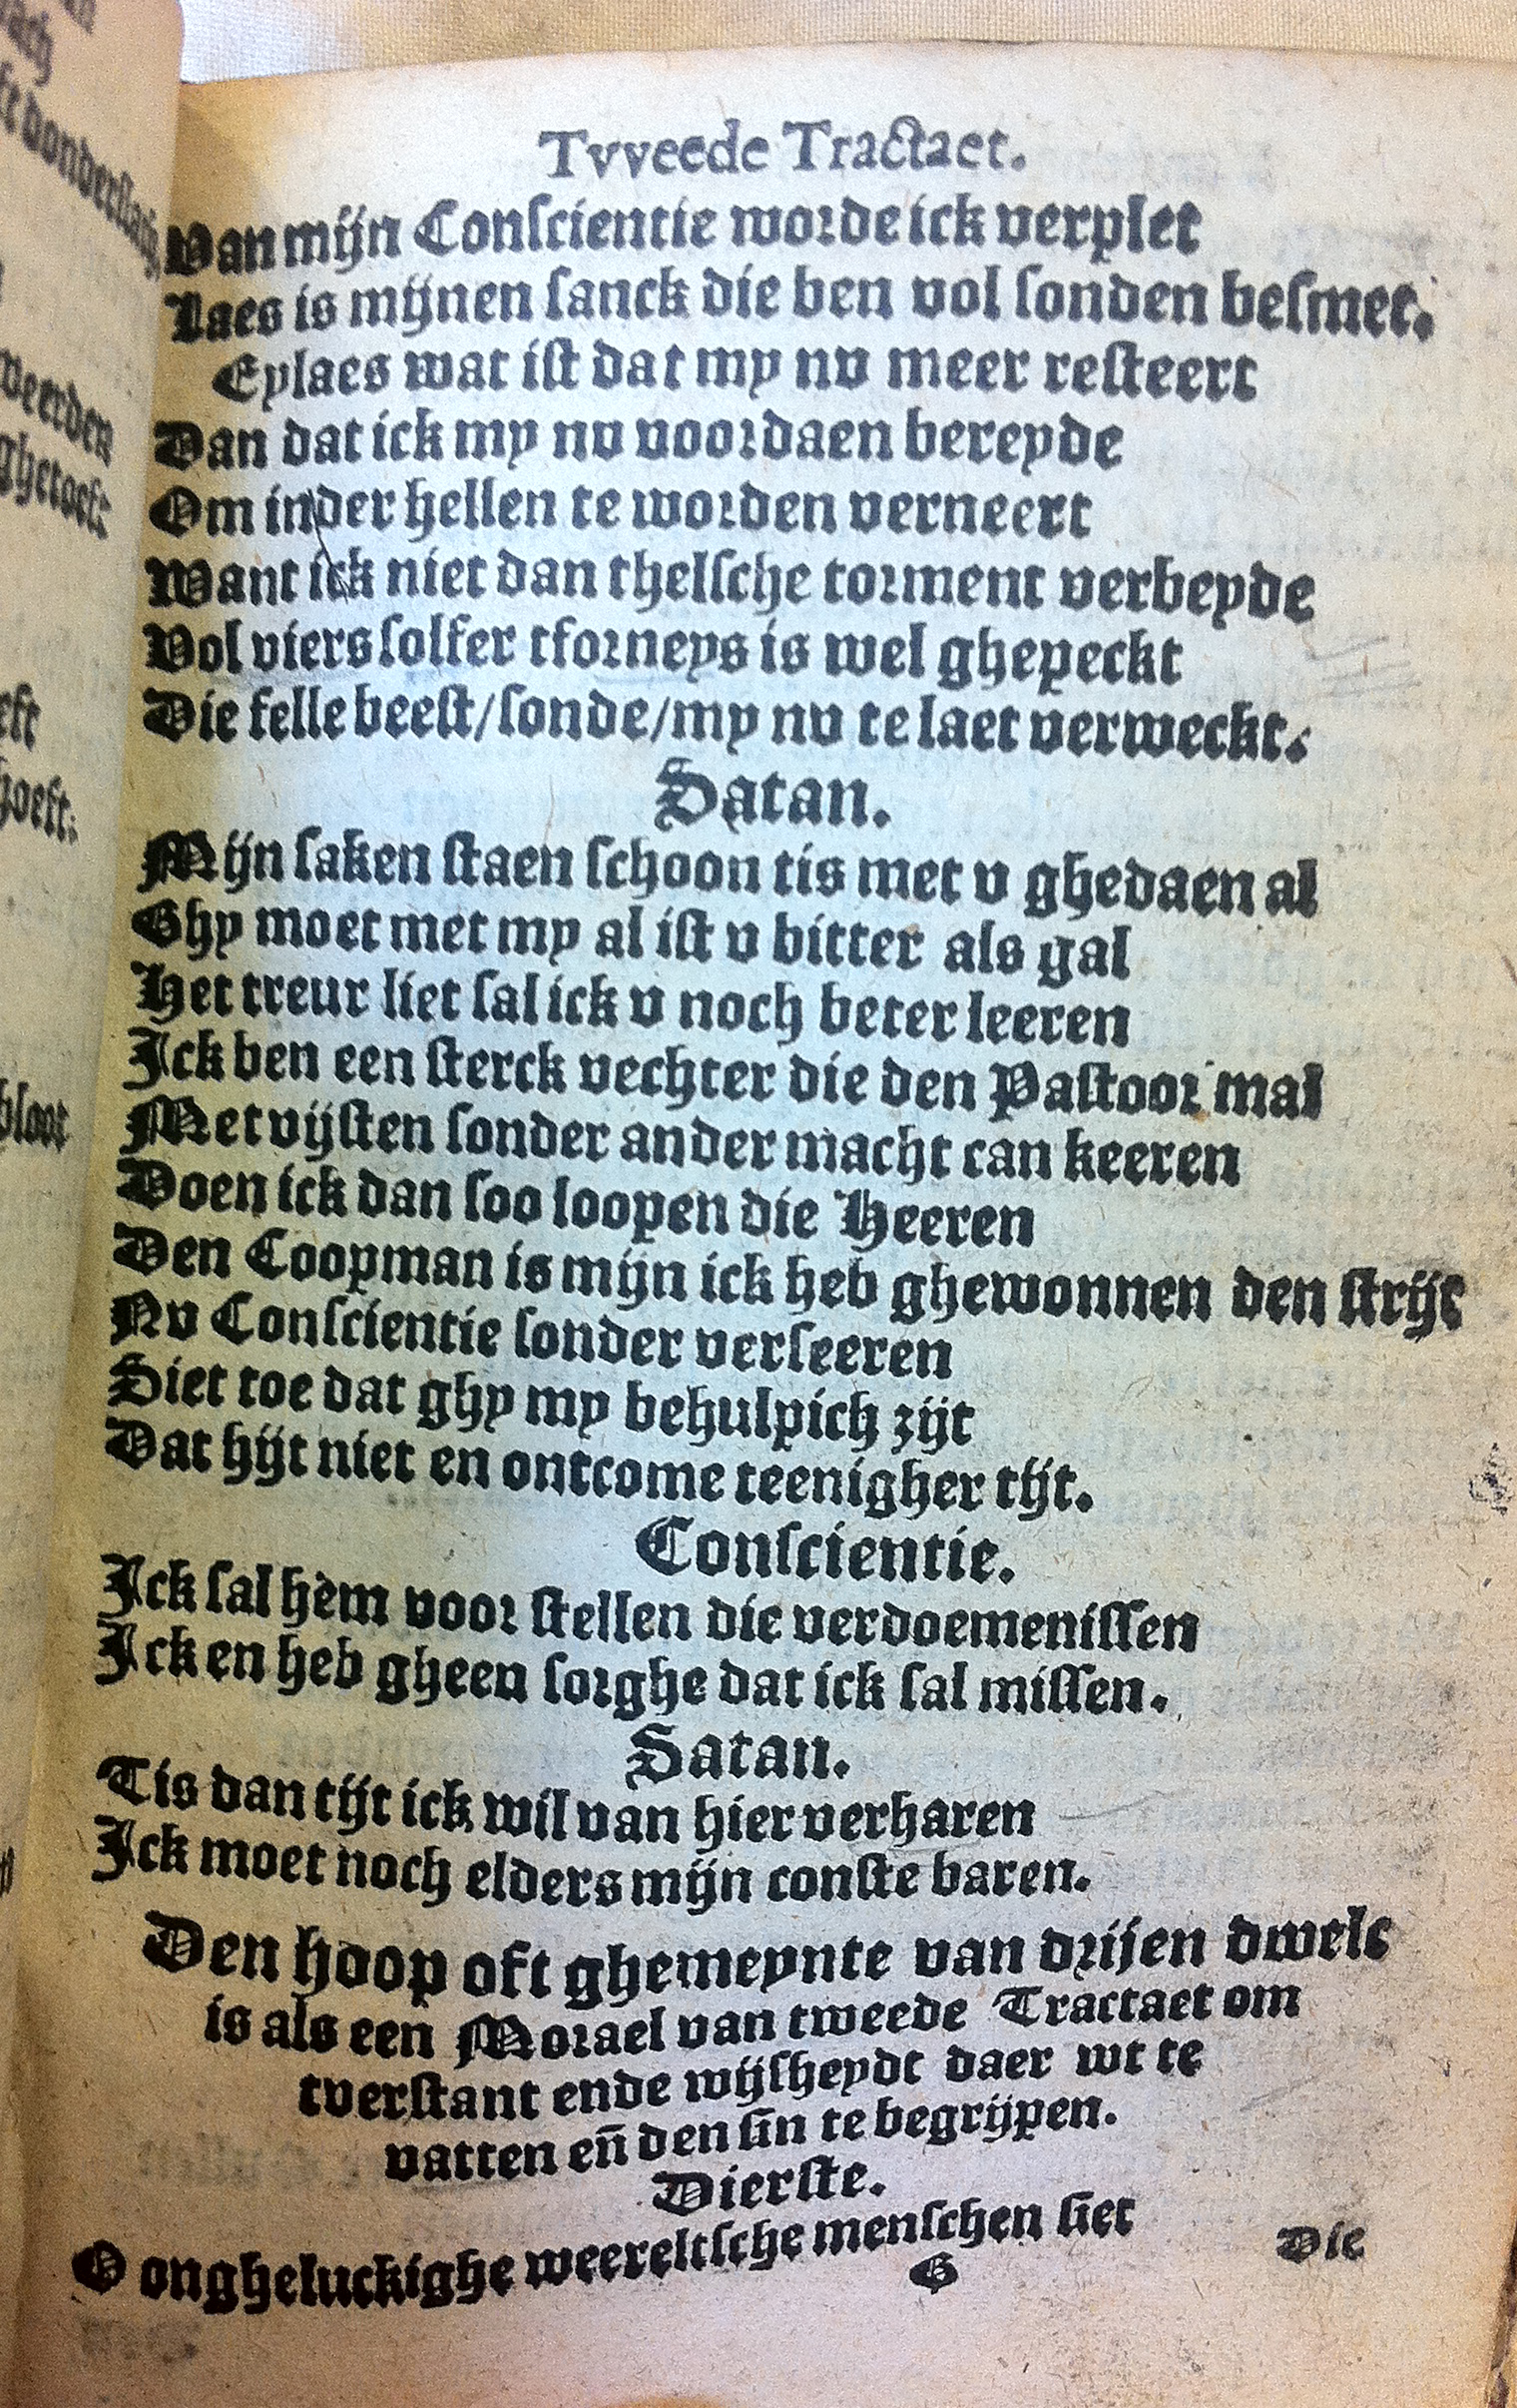 Tvveede Tractaet.
Van mijn Conscientie worde ick verplet
Laes is mijnen sanck die ben vol sonden besmet.
Eylaes wat ist dat my nv meer resteert
Dan dat ick my nv voordaen bereyde
Om inder hellen te worden verneert
Want ick niet dan thelsche torment verbeyde
Vol viers solfer tforneys is wel ghepeckt
Die felle beest/sonde/my nv te laet verweckt.
Satan.
Mijn saken staen schoon tis met v ghedaen al
Ghy moet met my al ist v bitter als gal
Het treur liet sal ick v noch beter leeren
Ick ben een sterck vechter die den Pastoor mal
Met vijsten sonder ander macht can keeren
Doen ick dan soo loopen die Heeren
Den Coopman is mijn ick heb ghewonnen den strijt
Nv Conscientie sonder verseeren
Siet toe dat ghy my behulpich zijt
Dat hijt niet en ontcome teenigher tijt.
Conscientie.
Ick sal hem voor stellen die verdoemenissen
Ick en heb gheen sorghe dat ick sal missen.
Satan.
Tis dan tijt ick wil van hier verharen
Ick moet noch elders mijn conste baren.
Den hoop oft ghemeynte van drijen dwelc
is als een Morael van tweede Tractaet om
tverstant ende wijsheydt daer wt te
vatten eñ den sin te begrijpen.
Dierste.
O ongheluckighe weereltsche menschen siet
G
Die